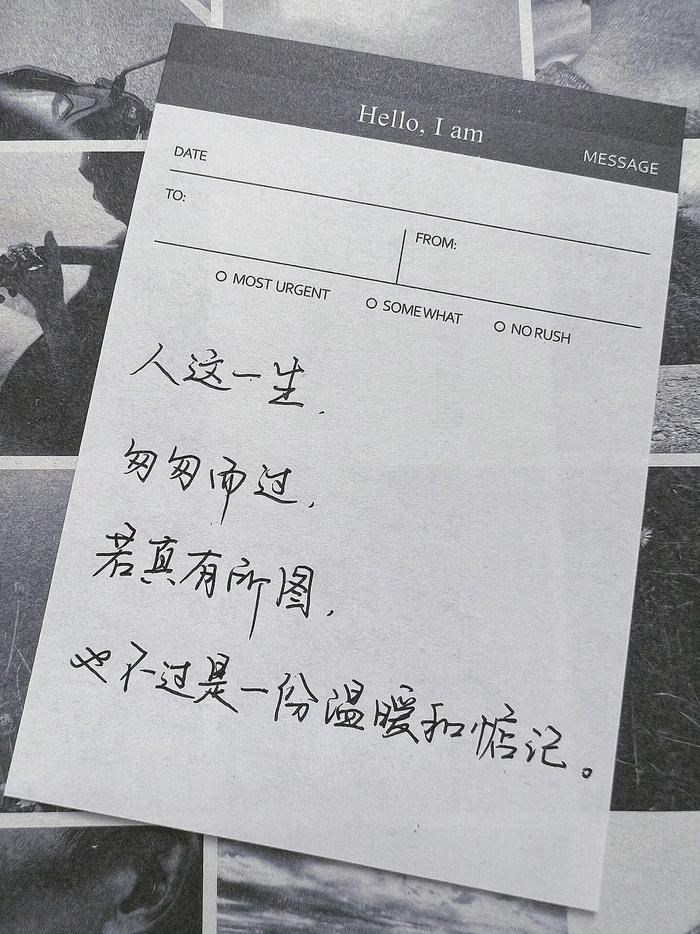 Hello, I am
MESSAGE
DATE
TO:
FROM:
MOST URGENT
SOMEWHAT
NO RUSH
人这一生,
匆匆而过,
若真有所图,
也不过是一份温暖和惦记。